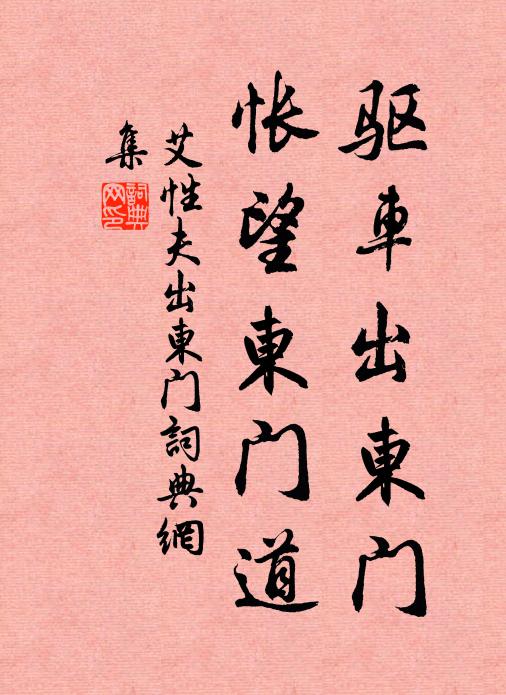 驱車出東门
怅望東门道
艾性夫出東门詞典網
集
詞典
网印